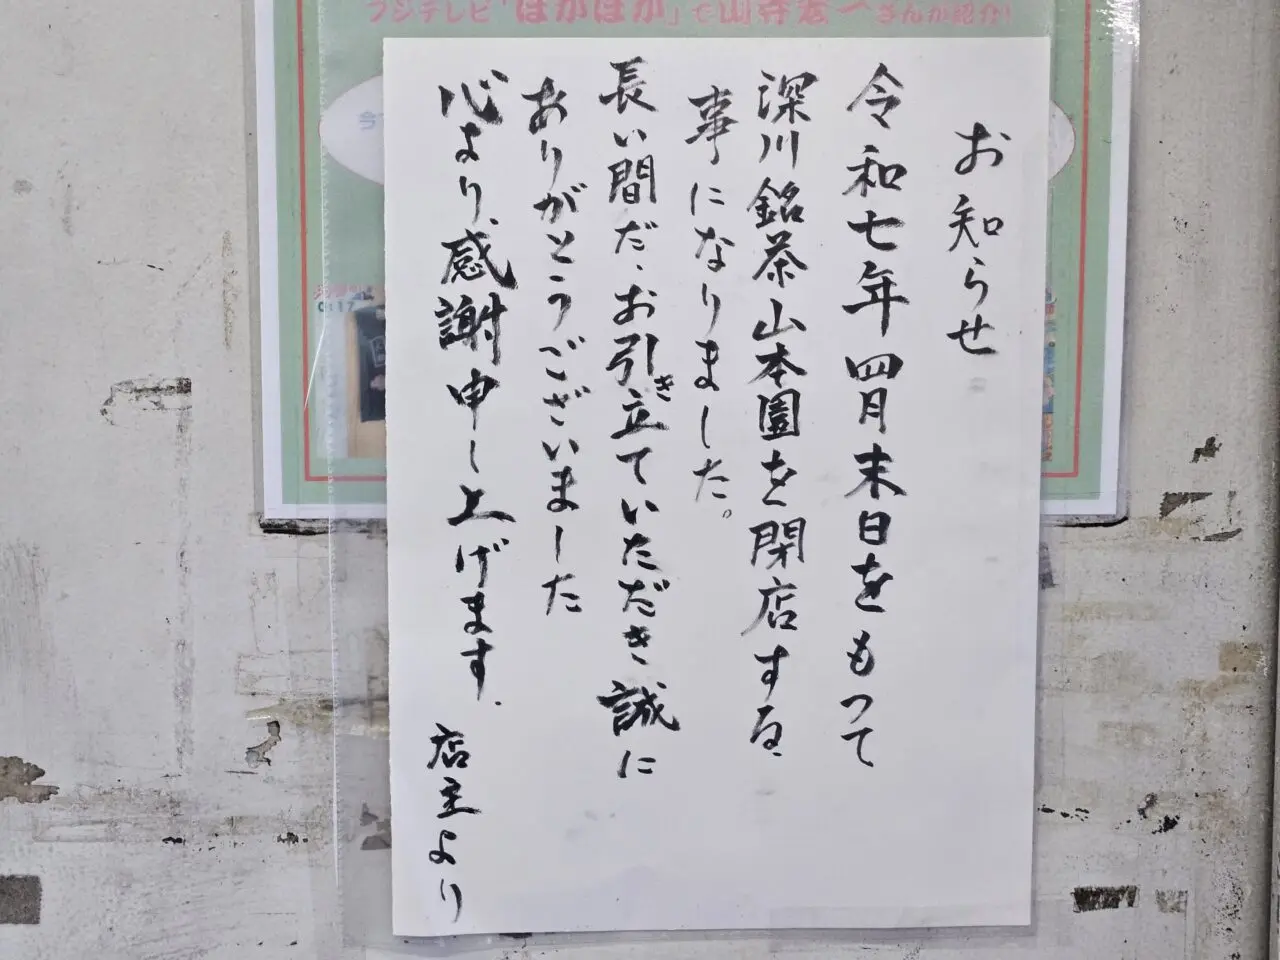 フジテレビ「ぽかぽか」で山寺宏一さんが紹介!
お知らせ
令和七年四月末日をもって
深川銘茶山本園を閉店する
事になりました。
長い間だ、お引き立ていただき、誠に
ありがとうございました
心より、感謝申し上げます。
店主より
0:17